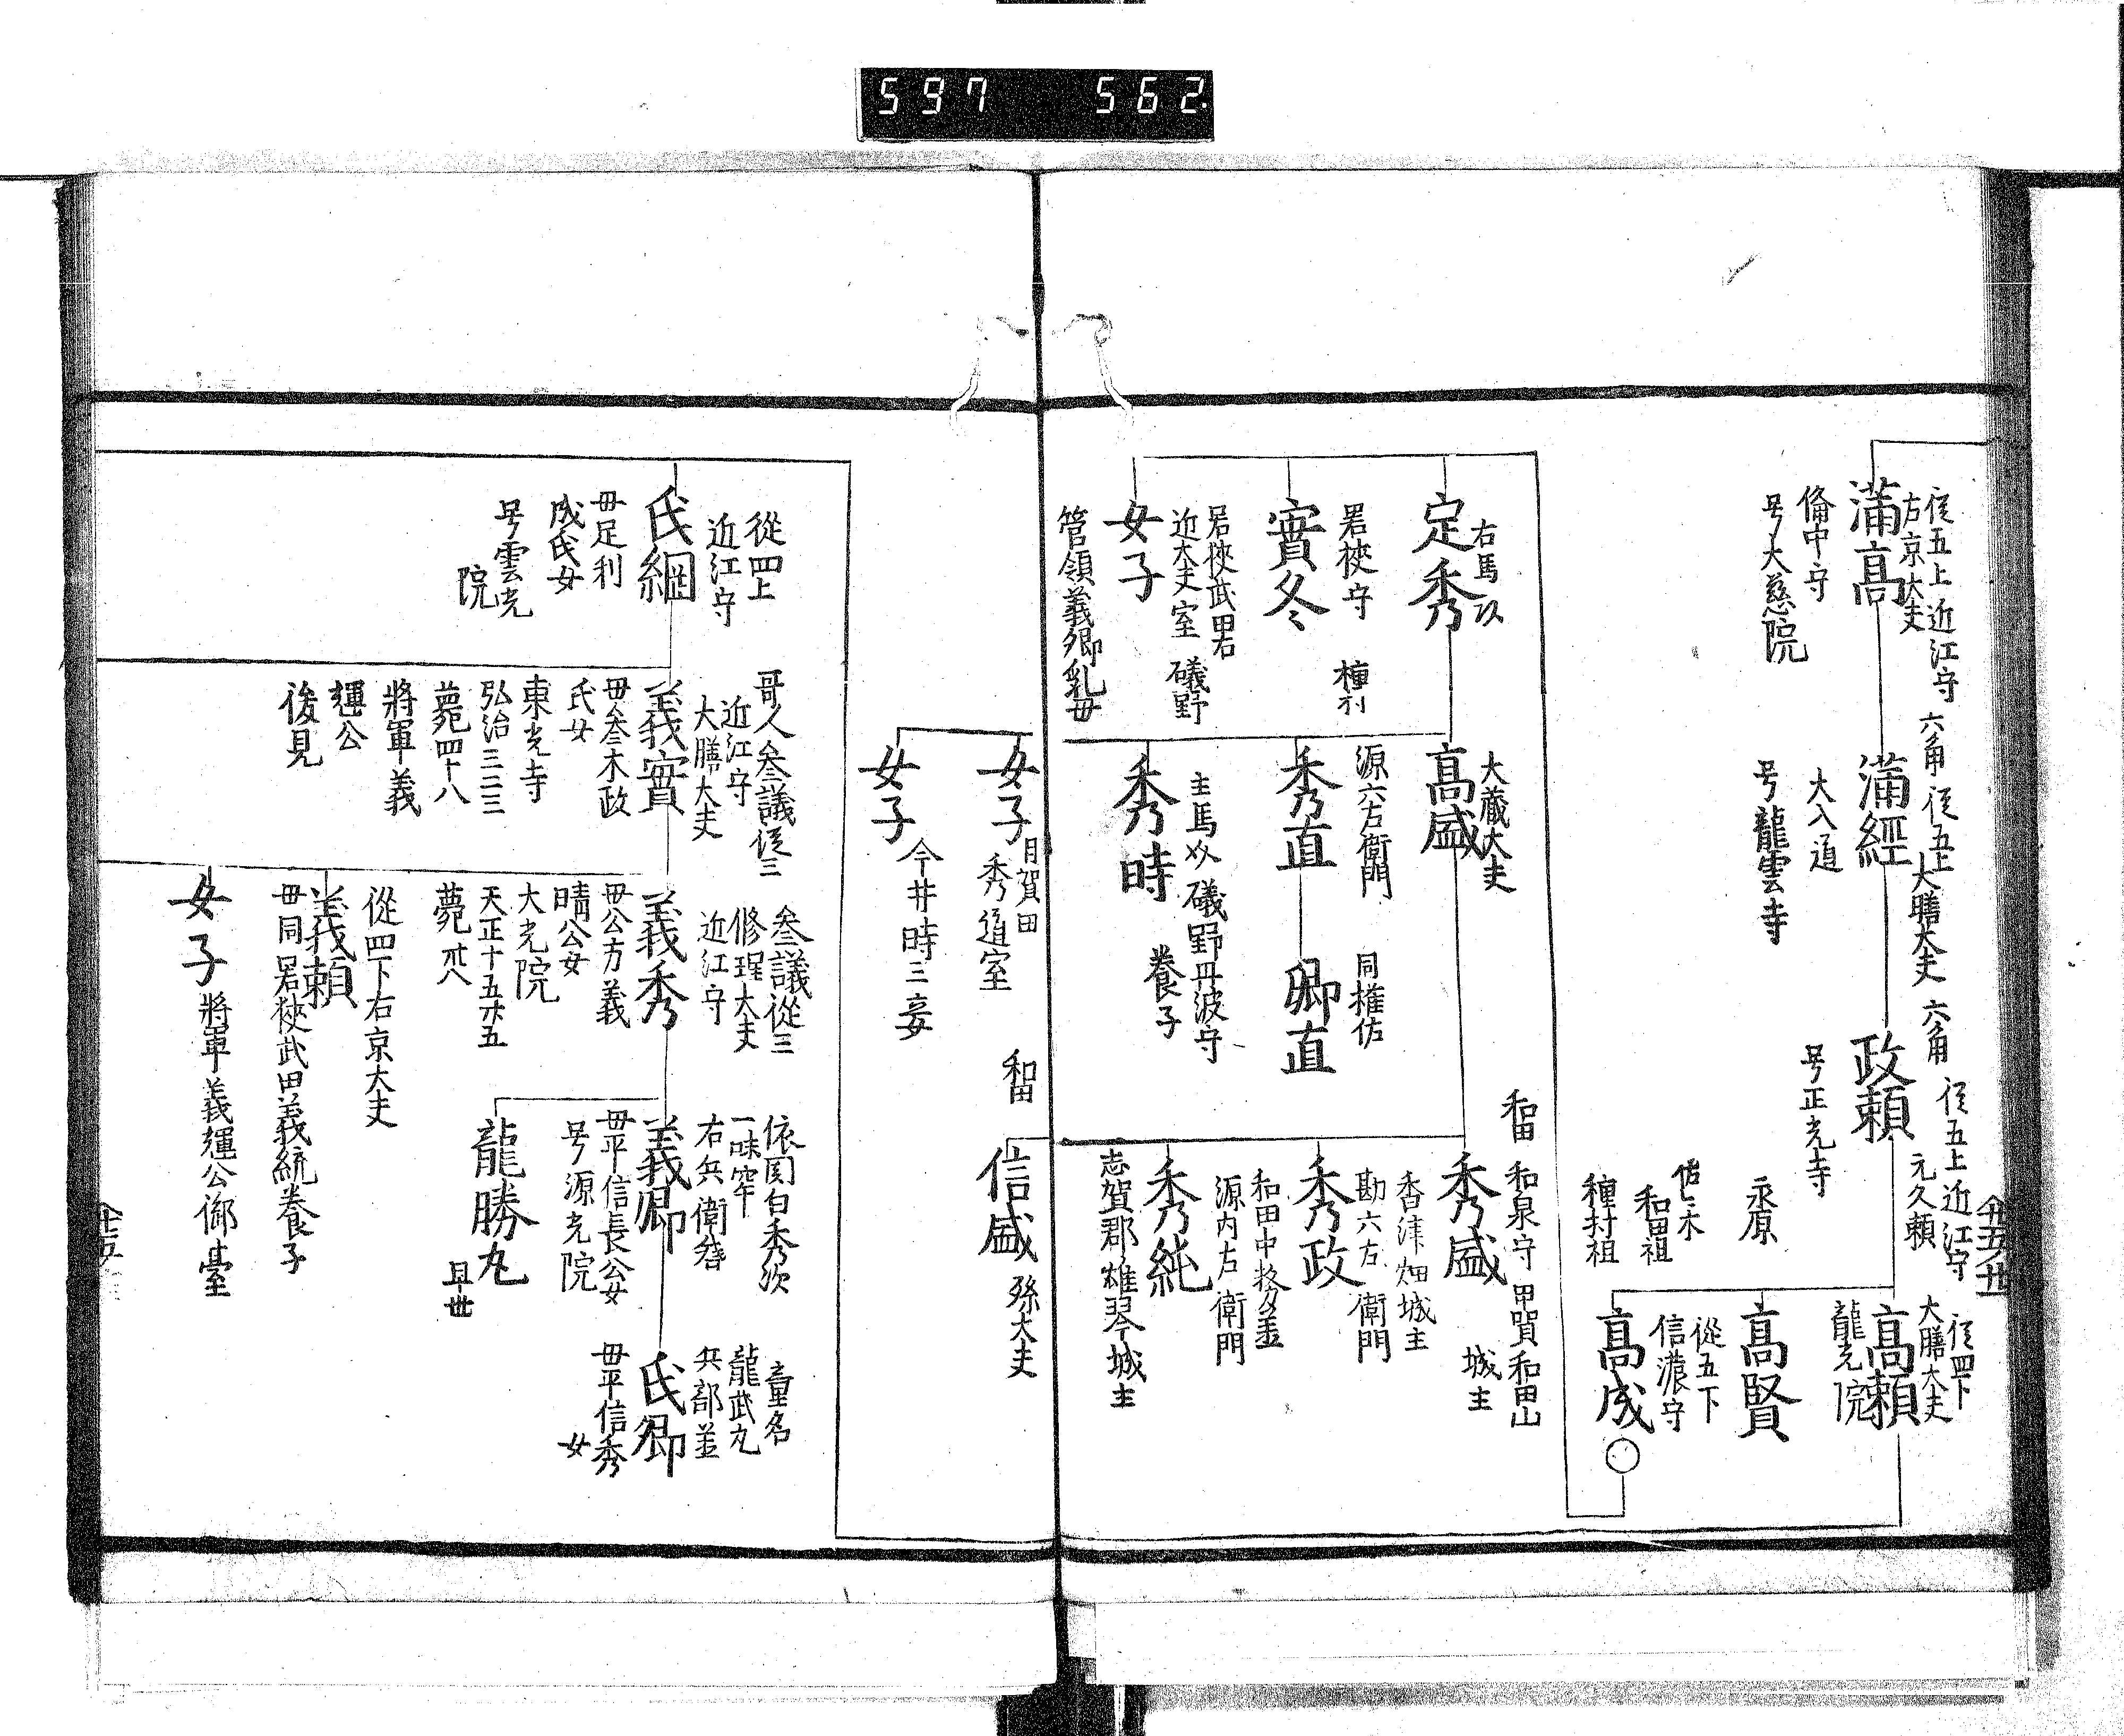 597 562
従五上 近江守
左京大夫
満高
備中守
号大慈院
六角 従五上
大膳大夫
満經
大入道
号龍雲寺
六角
従五上近江守
元久頼
政頼
号正光寺
従四下
大膳大夫
高頼
龍光院
永原
高賢
佐々木
和田祖
従五下
信濃守
種村祖
高成
右馬頭
定秀
若狹守
實冬
若狹武田右
近大夫室
女子
管領義卿乳母
種村
大藏大夫
高盛
源六左衛門
秀直
礒野
主馬
礒野丹波守
養子
秀時
同権佐
卿直
和田
和泉守 甲賀和田山
城主
秀盛
香津畑城主
勘六左衛門
秀政
和田中務
源内左衛門
秀純
志賀郡雄琴城主
和田
信盛
孫大夫
女子
秀道室
女子
今井時三妾
従四上
近江守
氏綱
毋足利
成氏女
号雲光
院
参議従三
近江守
大膳大夫
義實
毋参木政
氏女
東光寺
弘治三三三
薨四十八
將軍義
輝公
後見
参議従三
修理大夫
近江守
義秀
毋公方義
晴公女
大光院
薨
従四下右京大夫
義頼
毋同若狹武田義統養子
女子
將軍義輝公御臺
依関白秀次
一味牢
右兵衛督
義卿
毋平信長公女
号源光院
龍勝丸
早世
童名
龍武丸
氏卿
毋平信秀
女